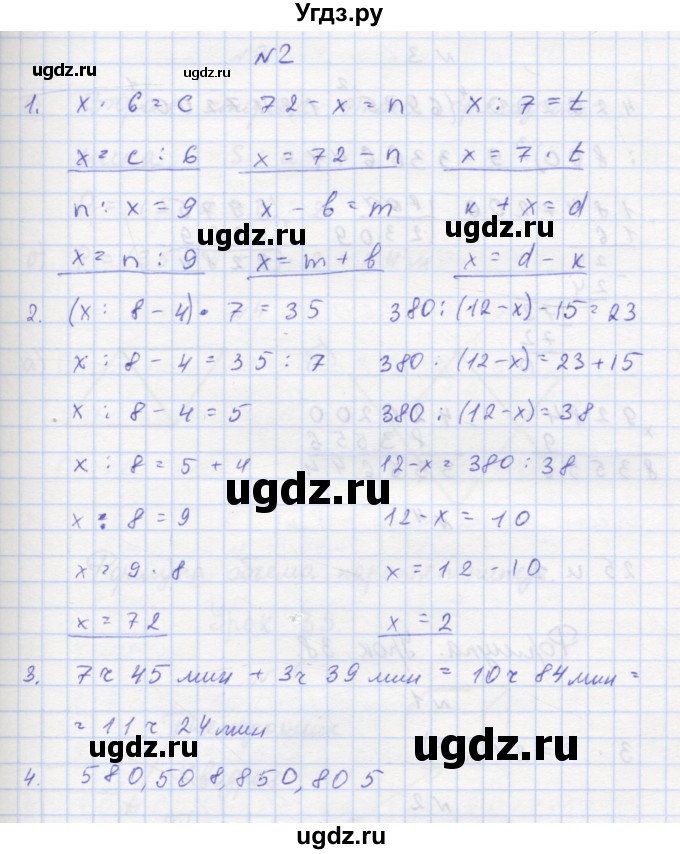 Угдз.ру
№2
ugdz.ru ugdz.ru
1. x · 6 = c 72 - x = n x : 7 = t
x = c : 6 x = 72 - n x = 7 · t
n : x = 9 x - b = m к + x = d
ugdz.ru ugdz.ru
x = n : 9 x = m + b x = d - к
2. (x : 8 - 4) · 7 = 35 380 : (12 - x) - 15 = 23
x : 8 - 4 = 35 : 7 380 : (12 - x) = 23 + 15
x : 8 - 4 = 5 380 : (12 - x) = 38
x : 8 = 5 + 4 12 - x = 380 : 38
ugdz.ru
x : 8 = 9 12 - x = 10
ugdz.ru
x = 9 · 8 x = 12 - 10
x = 72 x = 2
3. 7ч 45 мин + 3ч 39 мин = 10ч 84 мин =
= 11ч 24 мин
ugdz.ru ugdz.ru
4. 580, 508, 850, 805
ugdz.ru
ugdz.ru